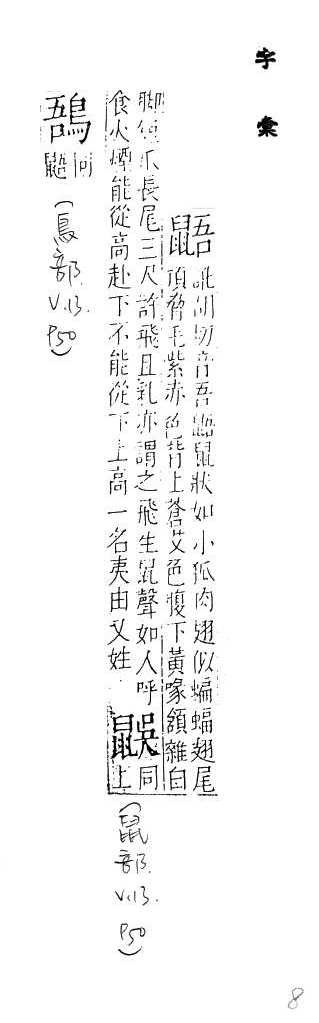 字彙
鼯 訛胡切音吾鼯鼠狀如小狐肉翅似蝙蝠翅尾
項脅毛紫赤色背上蒼艾色腹下黃喙頷雜白
脚短爪長尾三尺許飛且乳亦謂之飛生鼠聲如人呼
食火煙能從高赴下不能從下上高一名夷由又姓 䫓同上
(鼠部. V.13. P50)
鵐同鼯
(鳥部. V.13. P50)
8